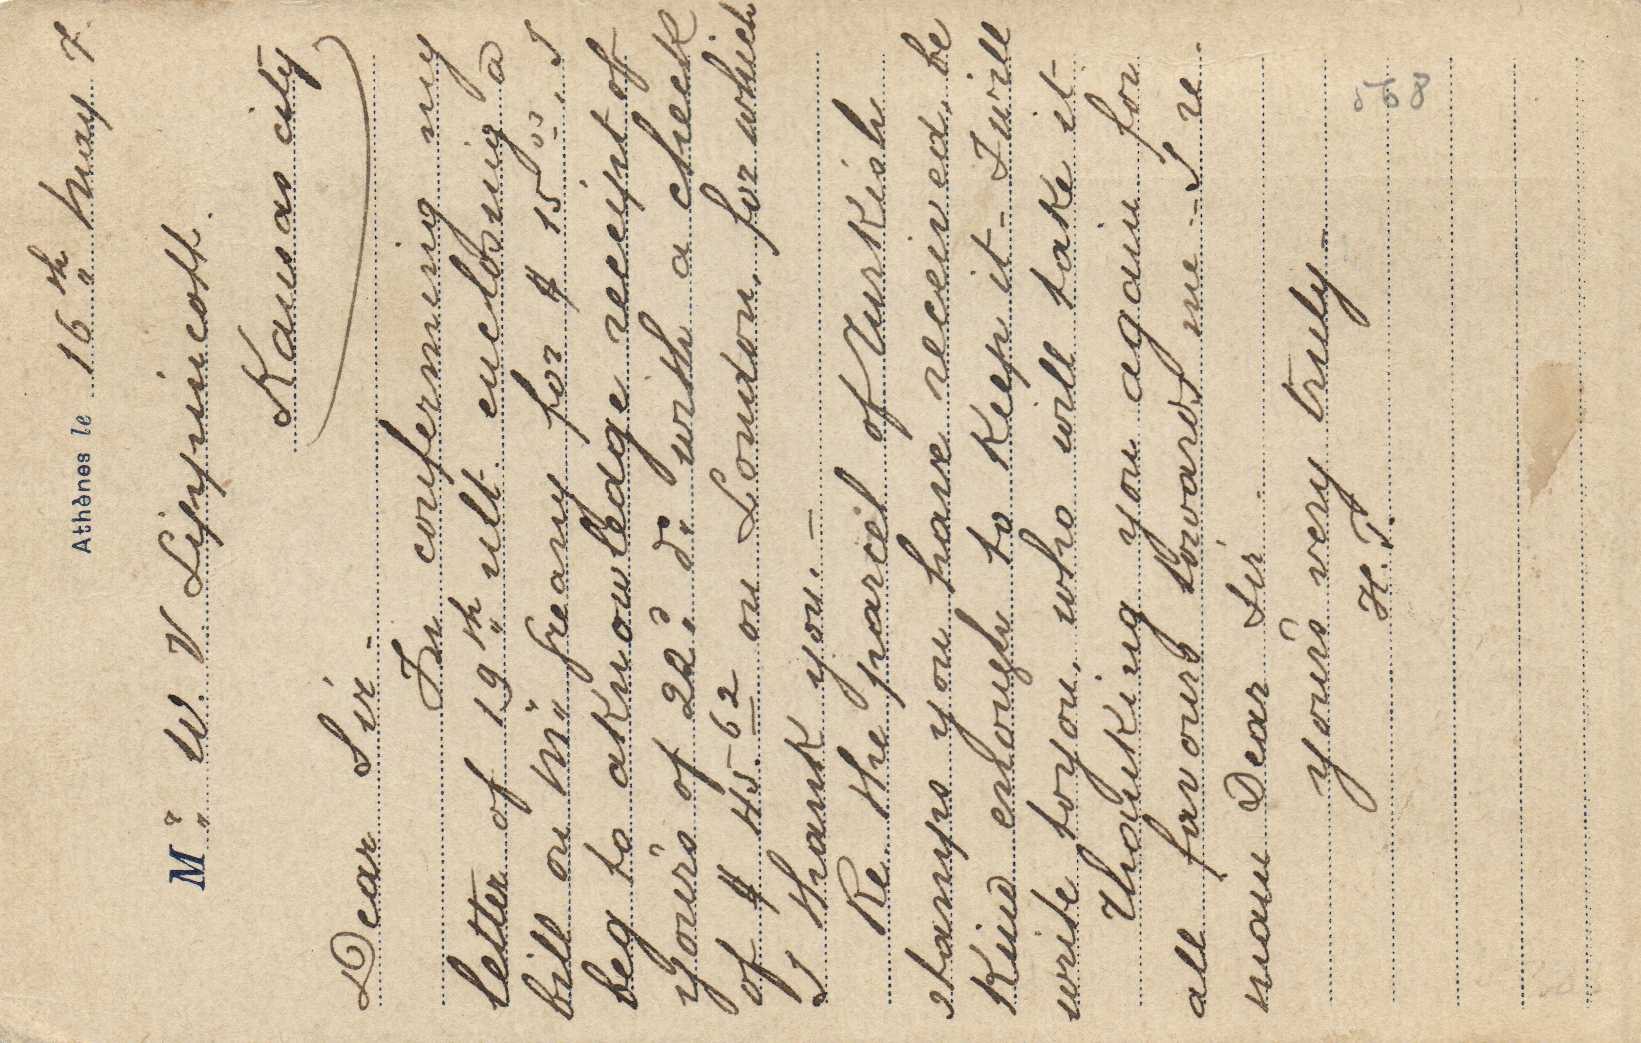 Athènes le 16th May 7.
Mr. W. V Lippincott.
Kansas city
Dear Sir.
In conferming my
letter of 19th ult. enclosing a
bill on for $ 15.02. I
beg to aknowledge receipt of
yours of 22d. with a check
of $ 45.62 on London, for which
I thank you. —
Re. the parcel of Turkish
stamps you have received, be
kind enough to keep it - I will
write to you, who will take it
Thanking you again for
all favours towards me - I re
main Dear Sir
yours very truly -
H. T.
558